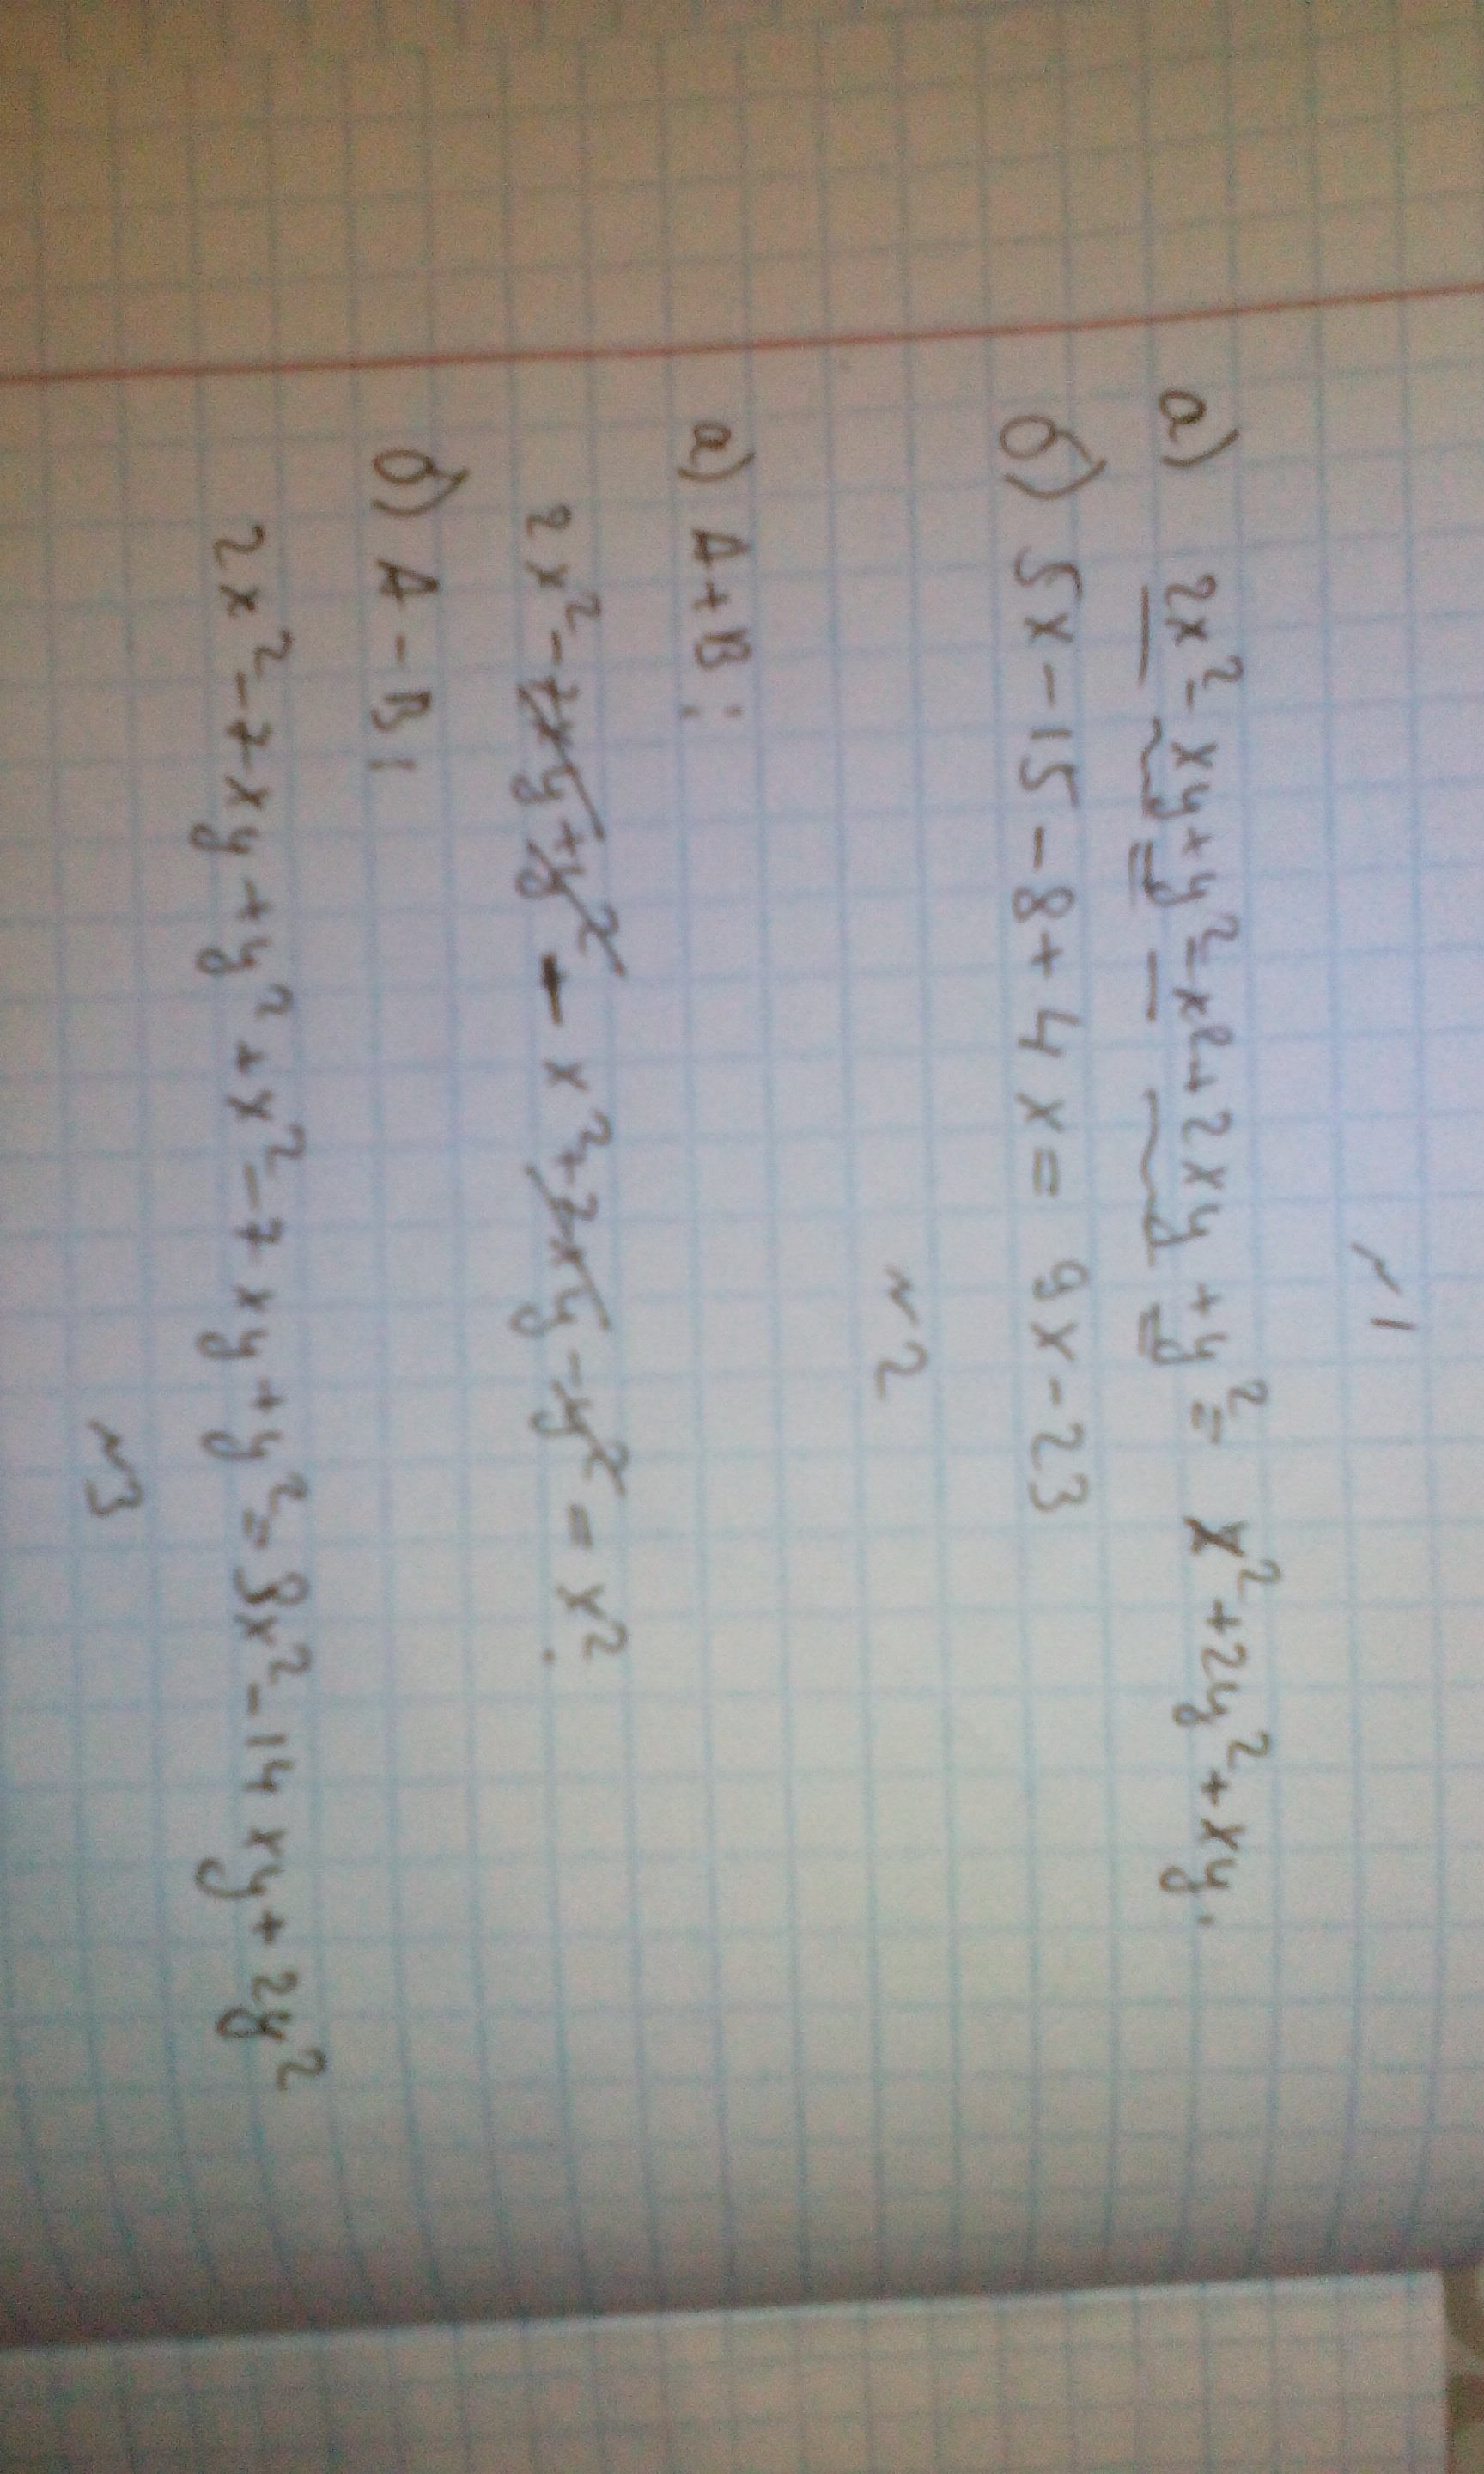 ~1
а) 2x²-xy+y²-x²+2xy+y²= x²+2y²+xy.
б) 5x-15-8+4x=9x-23
~2
а) A+B:
2x²-7xy+y²-x²+7xy-y²=x².
б) A-B;
2x²-7xy+y²+x²-7xy+y²=3x²-14xy+2y²
~3